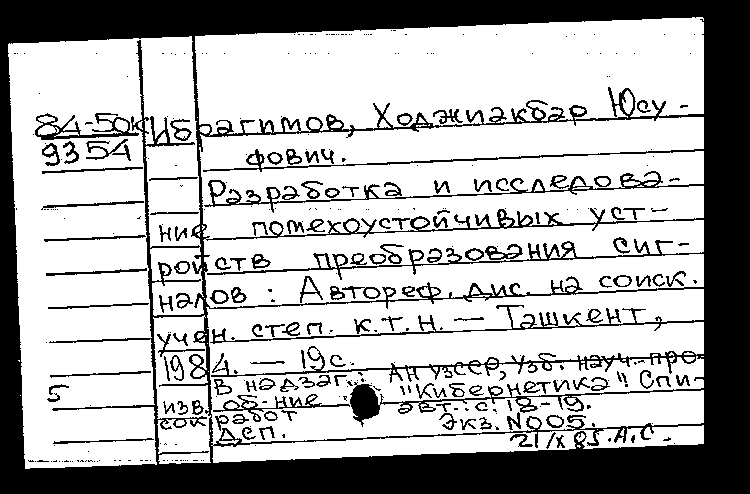 84-50к Ибрагимов, Ходжиакбар Юсу-
9354 фович.
Разработка и исследова-
ние помехоустойчивых уст-
ройств преобразования сиг-
налов : Автореф. дис. на соиск.
учен. степ. к.т.н. — Ташкент,
1984. — 19 с.
В надзаг.: АН УзССР, Узб. науч.-про-
5 изв. об-ние "Кибернетика" Спи-
сок работ авт.: с. 18-19.
Д.СП. Экз. N005.
21/X 85. А.С.